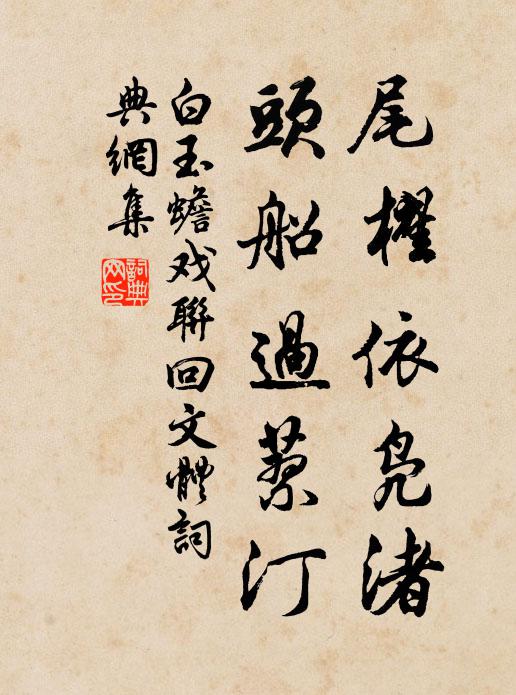 尾櫂依凫渚
頭船過蓼汀
白玉蟾戏聯回文體詞
典網集
詞典
网印